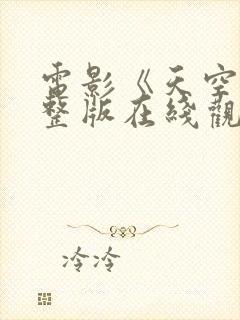 電影《天空
整版在綫觀
冷冷